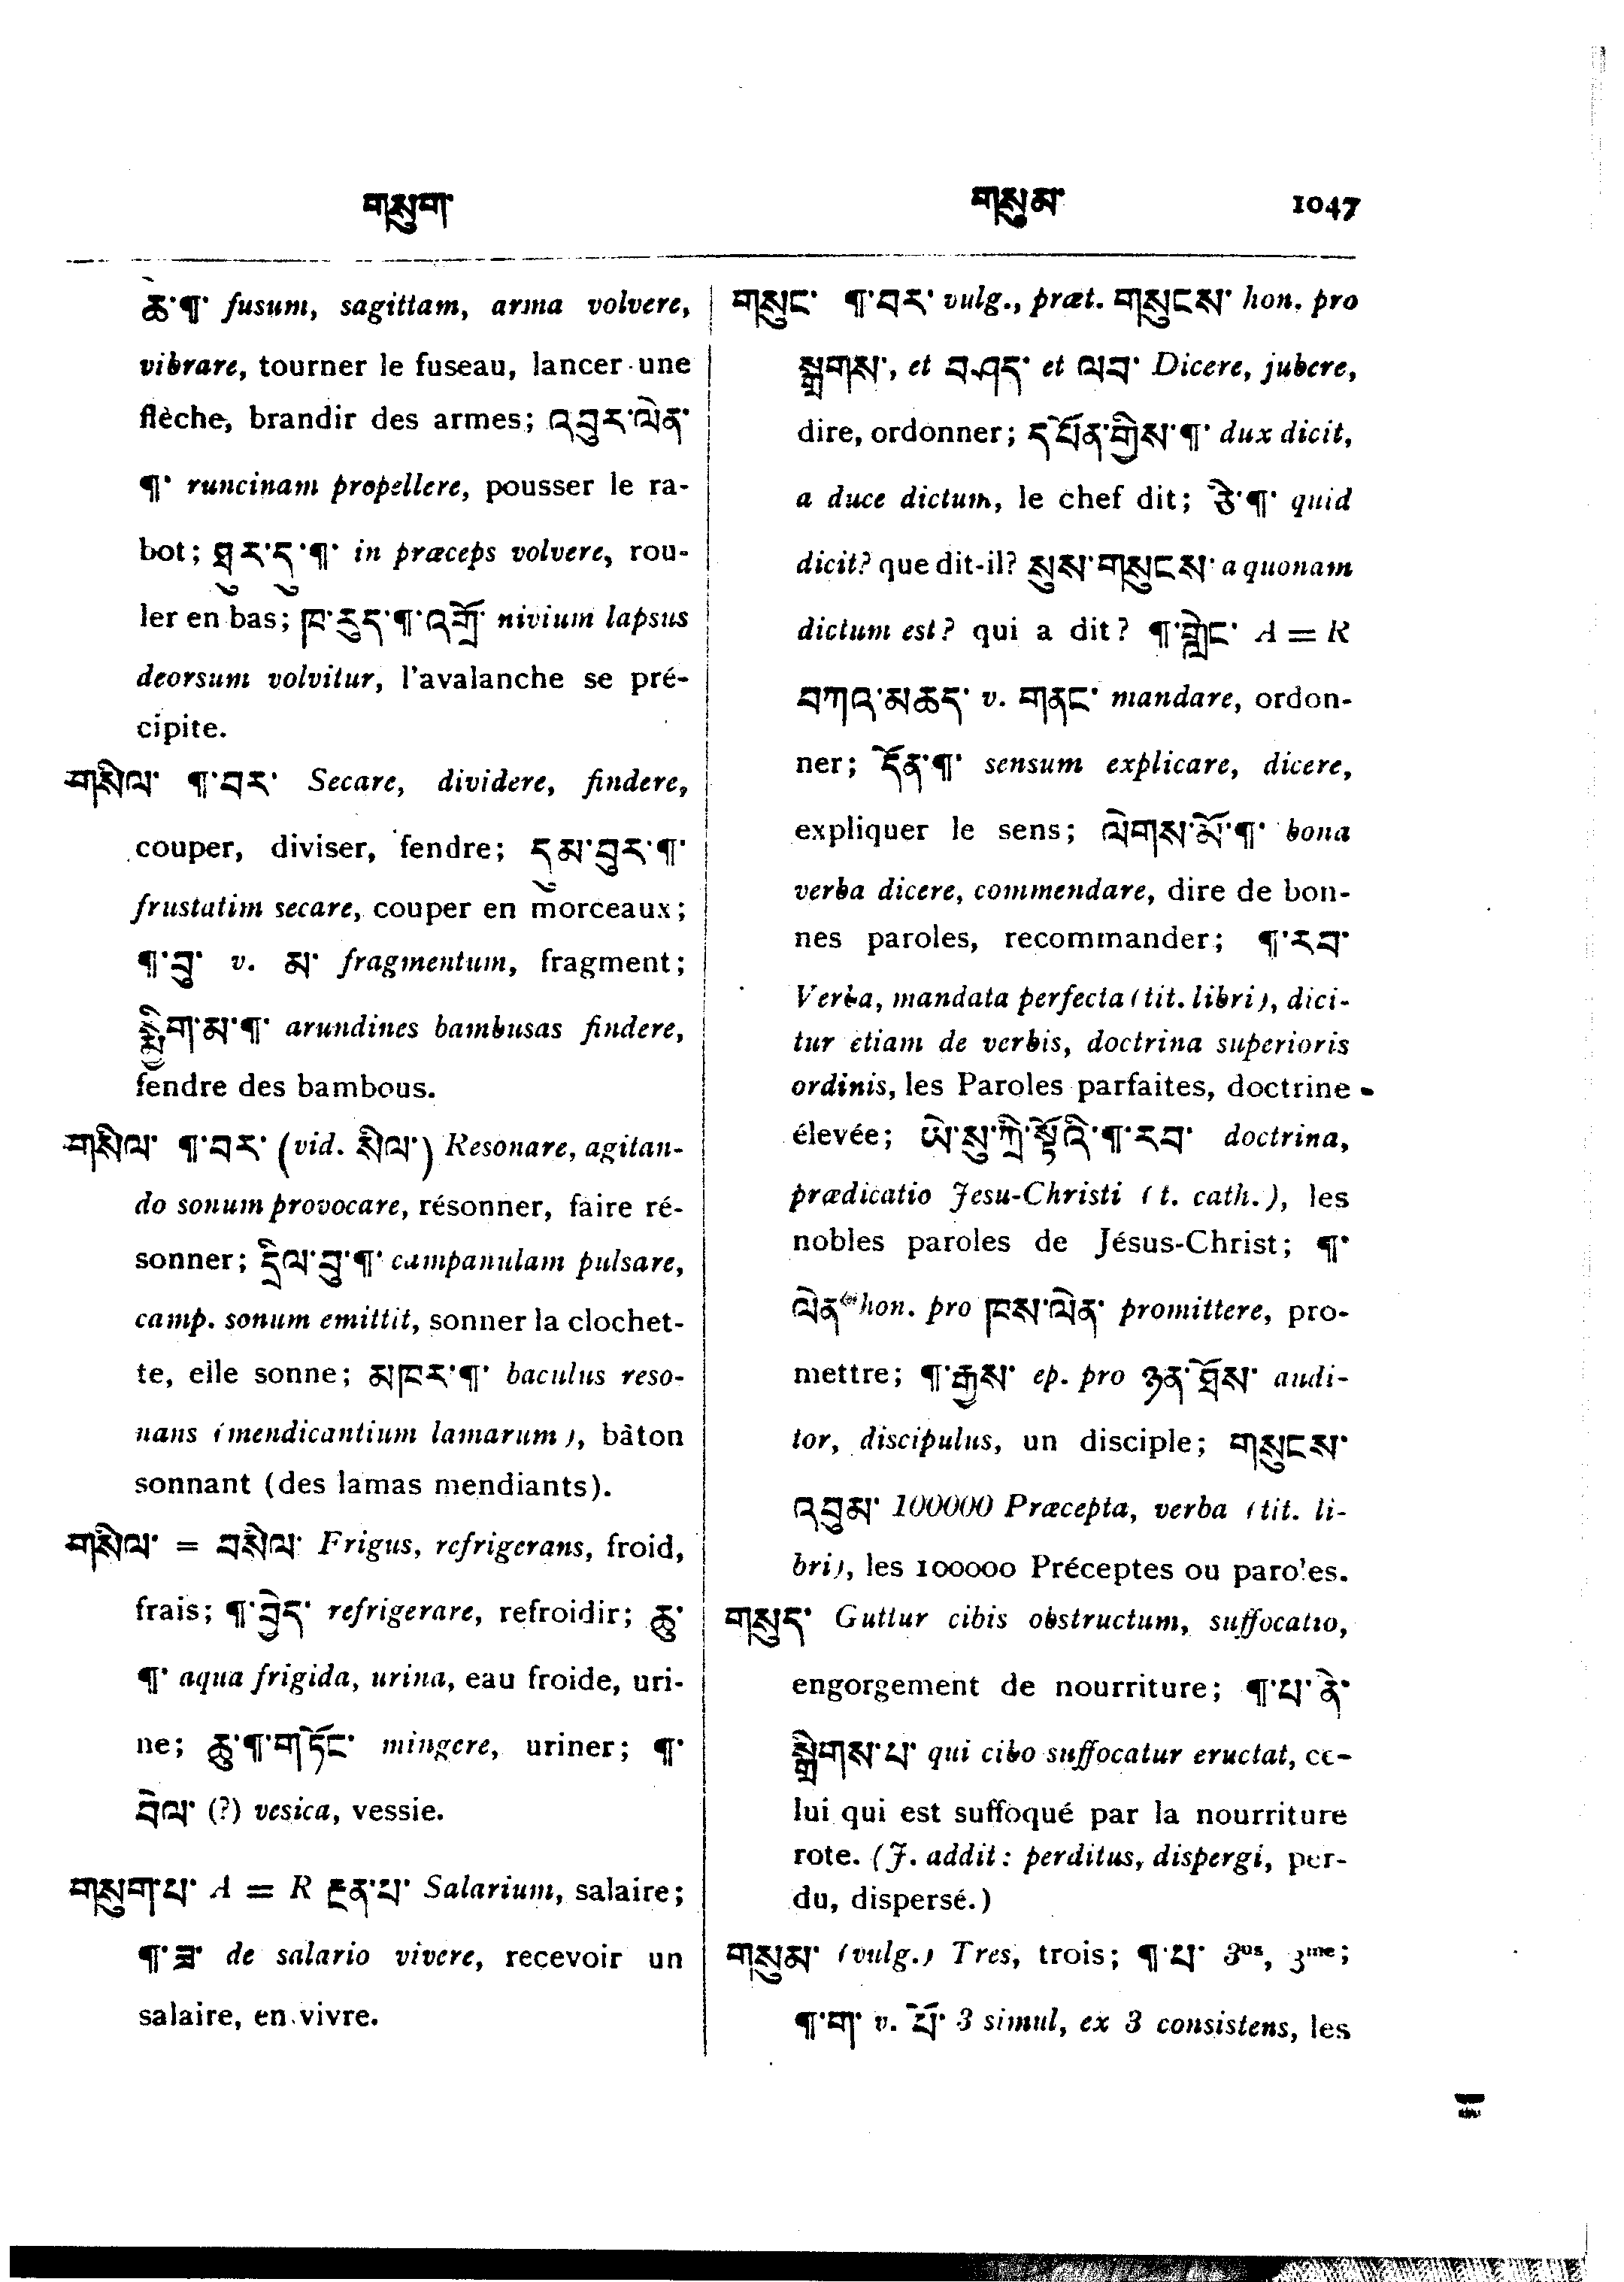 གསུག་
གསུམ་ 1047
ཆེ་¶་ fusum, sagittam, arma volvere,
vibrare, tourner le fuseau, lancer une
flèche, brandir des armes; འབུར་ལེན་
¶་ runcinam propellere, pousser le ra-
bot; ཐུར་དུ་¶་ in præceps volvere, rou-
ler en bas; ཁ་རུད་¶་འགྲོ་ nivium lapsus
deorsum volvitur, l'avalanche se pré-
cipite.
གསིལ་ ¶་བར་ Secare, dividere, findere,
couper, diviser, fendre; དུམ་བུར་¶་
frustatim secare, couper en morceaux;
¶་བུ་ v. མ་ fragmentum, fragment;
སྨྱིག་མ་¶་ arundines bambusas findere,
fendre des bambous.
གསིལ་ ¶་བར་ (vid. སིལ་) Resonare, agitan-
do sonum provocare, résonner, faire ré-
sonner; དྲིལ་བུ་¶་ campanulam pulsare,
camp. sonum emittit, sonner la clochet-
te, elle sonne; མཁར་¶་ baculus reso-
nans (mendicantium lamarum), bâton
sonnant (des lamas mendiants).
གསིལ་ = བསིལ་ Frigus, refrigerans, froid,
frais; ¶་བྱེད་ refrigerare, refroidir; ཆུ་
¶་ aqua frigida, urina, eau froide, uri-
ne; ཆུ་¶་གཏོང་ mingere, uriner; ¶་
བེལ་ (?) vesica, vessie.
གསུག་པ་ A = R རྔན་པ་ Salarium, salaire;
¶་ཟ་ de salario vivere, recevoir un
salaire, en vivre.
གསུང་ ¶་བར་ vulg., præt. གསུངས་ hon. pro
སྒྲགས་, et བཤད་ et ལབ་ Dicere, jubere,
dire, ordonner; དཔོན་གྱིས་¶་ dux dicit,
a duce dictum, le chef dit; ཅི་¶་ quid
dicit? que dit-il? སུས་གསུངས་ a quonam
dictum est? qui a dit? ¶་གླེང་ A = R
བཀའ་མཆད་ v. གནང་ mandare, ordon-
ner; དོན་¶་ sensum explicare, dicere,
expliquer le sens; ལེགས་མོ་¶་ bona
verba dicere, commendare, dire de bon-
nes paroles, recommander; ¶་རབ་
Verba, mandata perfecta (tit. libri), dici-
tur etiam de verbis, doctrina superioris
ordinis, les Paroles parfaites, doctrine
élevée; ཡེ་སུ་ཀྲི་སྟོའི་¶་རབ་ doctrina,
prædicatio Jesu-Christi (t. cath.), les
nobles paroles de Jésus-Christ; ¶་
ལེན་ hon. pro ཁས་ལེན་ promittere, pro-
mettre; ¶་རྒྱས་ ep. pro ཉན་ཐོས་ audi-
tor, discipulus, un disciple; གསུངས་
འབུམ་ 100000 Præcepta, verba (tit. li-
bri), les 100000 Préceptes ou paroles.
གསུད་ Guttur cibis obstructum, suffocatio,
engorgement de nourriture; ¶་པ་ནི་
སྒྲེགས་པ་ qui cibo suffocatur eructat, ce-
lui qui est suffoqué par la nourriture
rote. (J. addit: perditus, dispergi, per-
du, dispersé.)
གསུམ་ (vulg.) Tres, trois; ¶་པ་ 3us, 3me;
¶་ག་ v. པོ་ 3 simul, ex 3 consistens, les